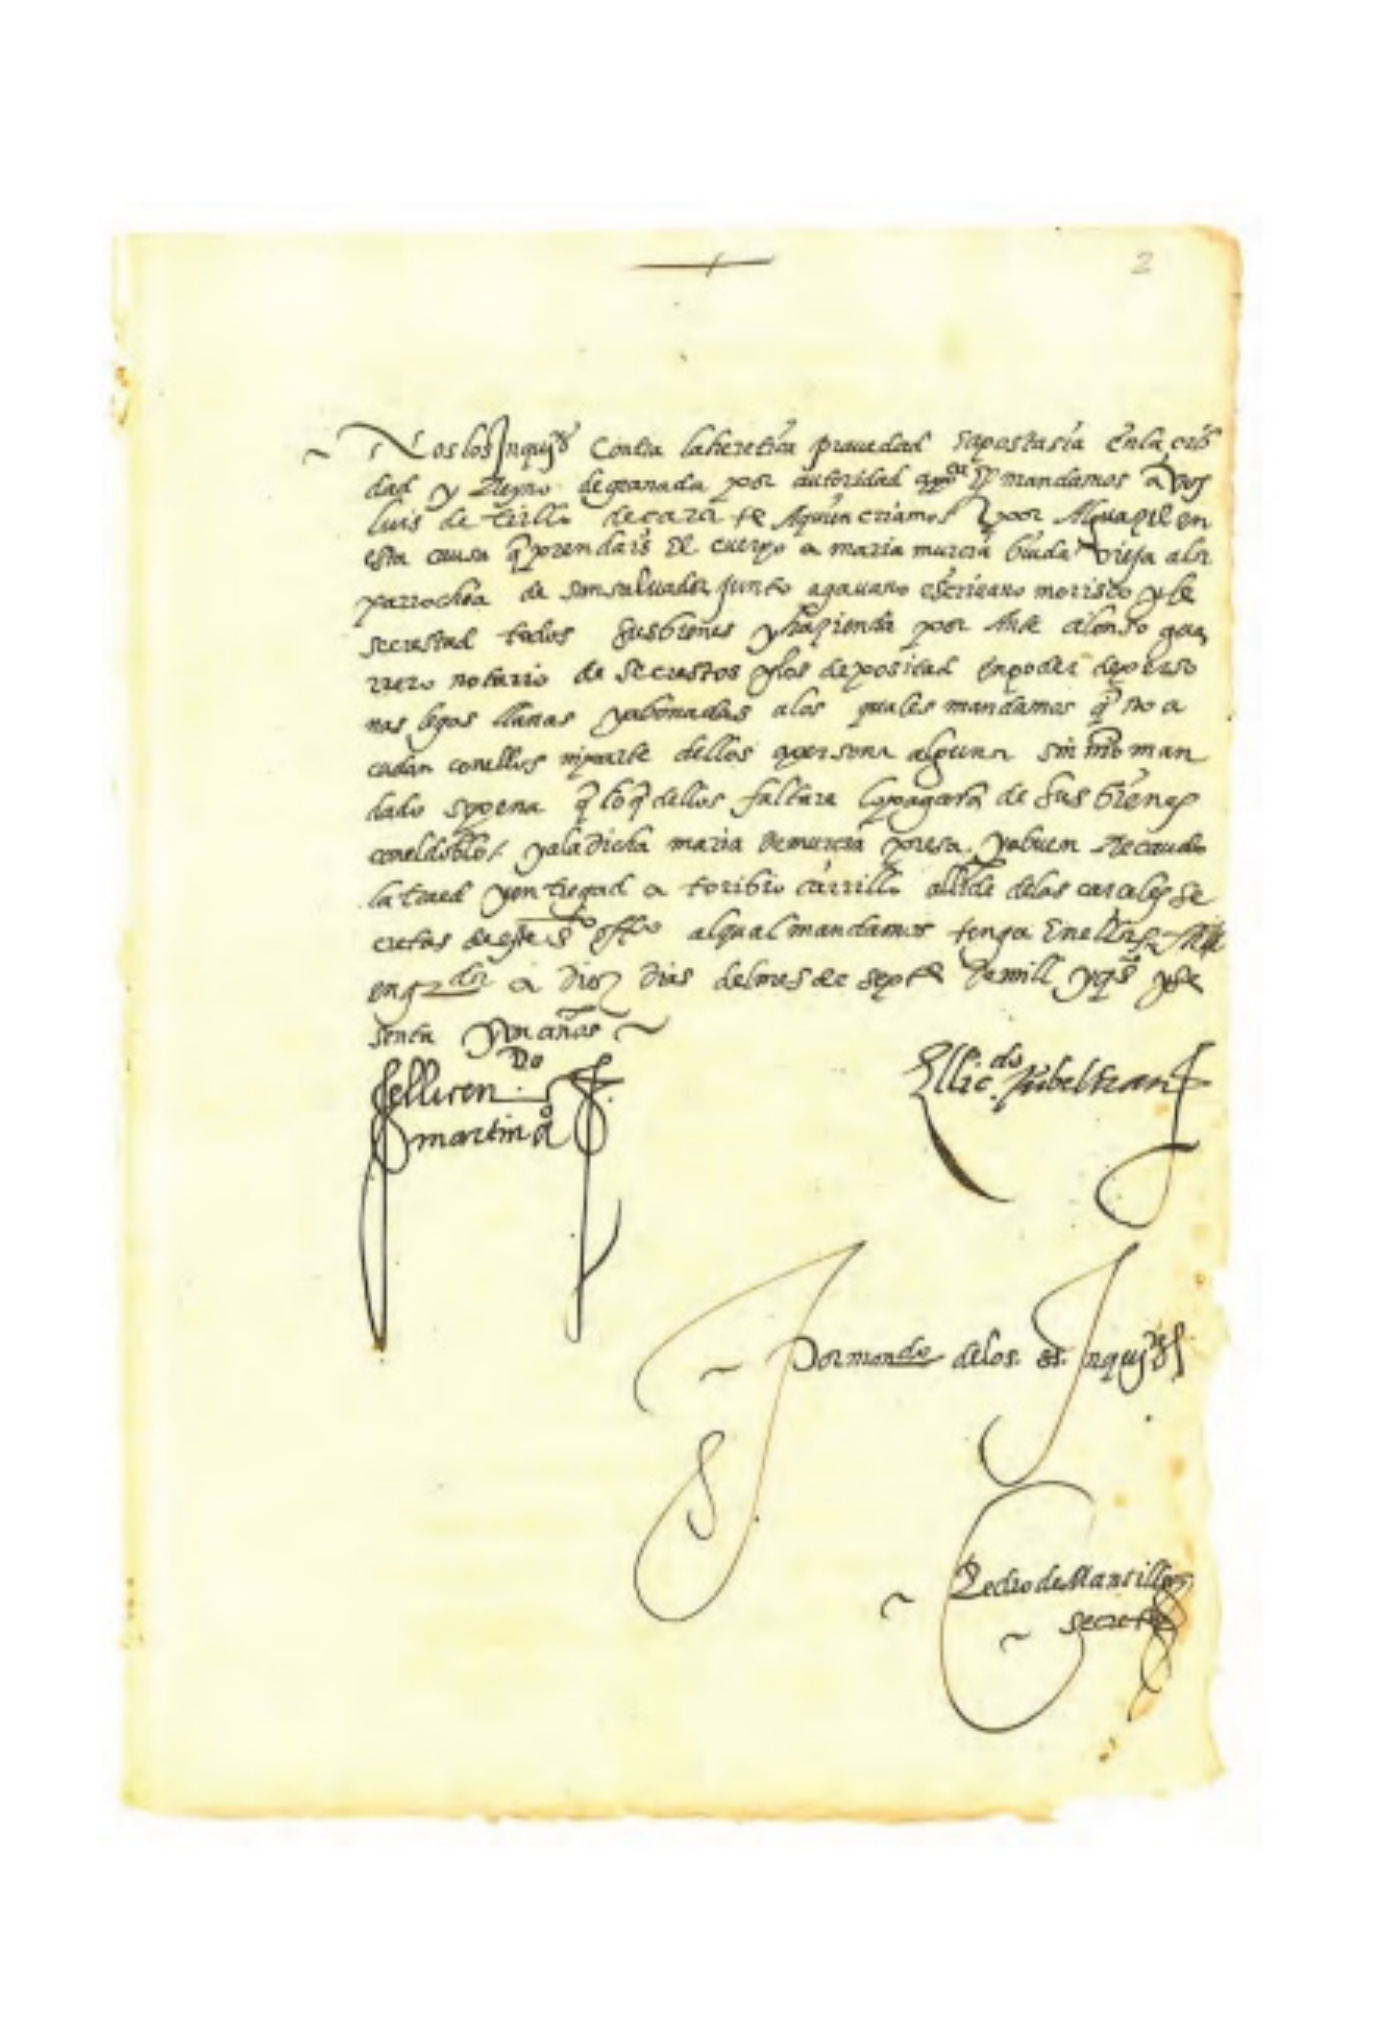 2
Nos los Inqui^res Contra la heretica pravedad y apostasia en la ciu
dad y Reyno de granada por autoridad app^ca & mandamos a vos
luis de tirllo de criamos por Alguazil en
esta causa q̃ prendais el cuerpo a maria murcia biuda vieja a la
parrochia de san saluador junto a gauano escriuano morisco y le
secrestad todos sus bienes y hazienda por Ante alonso gue
rrero notario de secrestos y los depositad en poder de perso
nas legas llanas y abonadas a los quales mandamos q̃ no a
cudan con ellos ni parte dellos a persona alguna sin nr̃o man
dado so pena q̃ lo q̃ dellos faltare lo pagaran de sus bienes
con el doblo / y a la dicha maria de murcia presa y a buen Recaudo
la traed y entregad a toribio carrillo all^de de las carceles se
cretas deste s^to off^o al qual mandamos tenga en ellas
en gr^da a diez dias del mes de sept^e de mill y q^os y se
senta y un años
El licen^do
martin a^o
El lic^do beltran
Por mand^do de los s^es Inqui^res
Pedro de Mansilla
secret^o